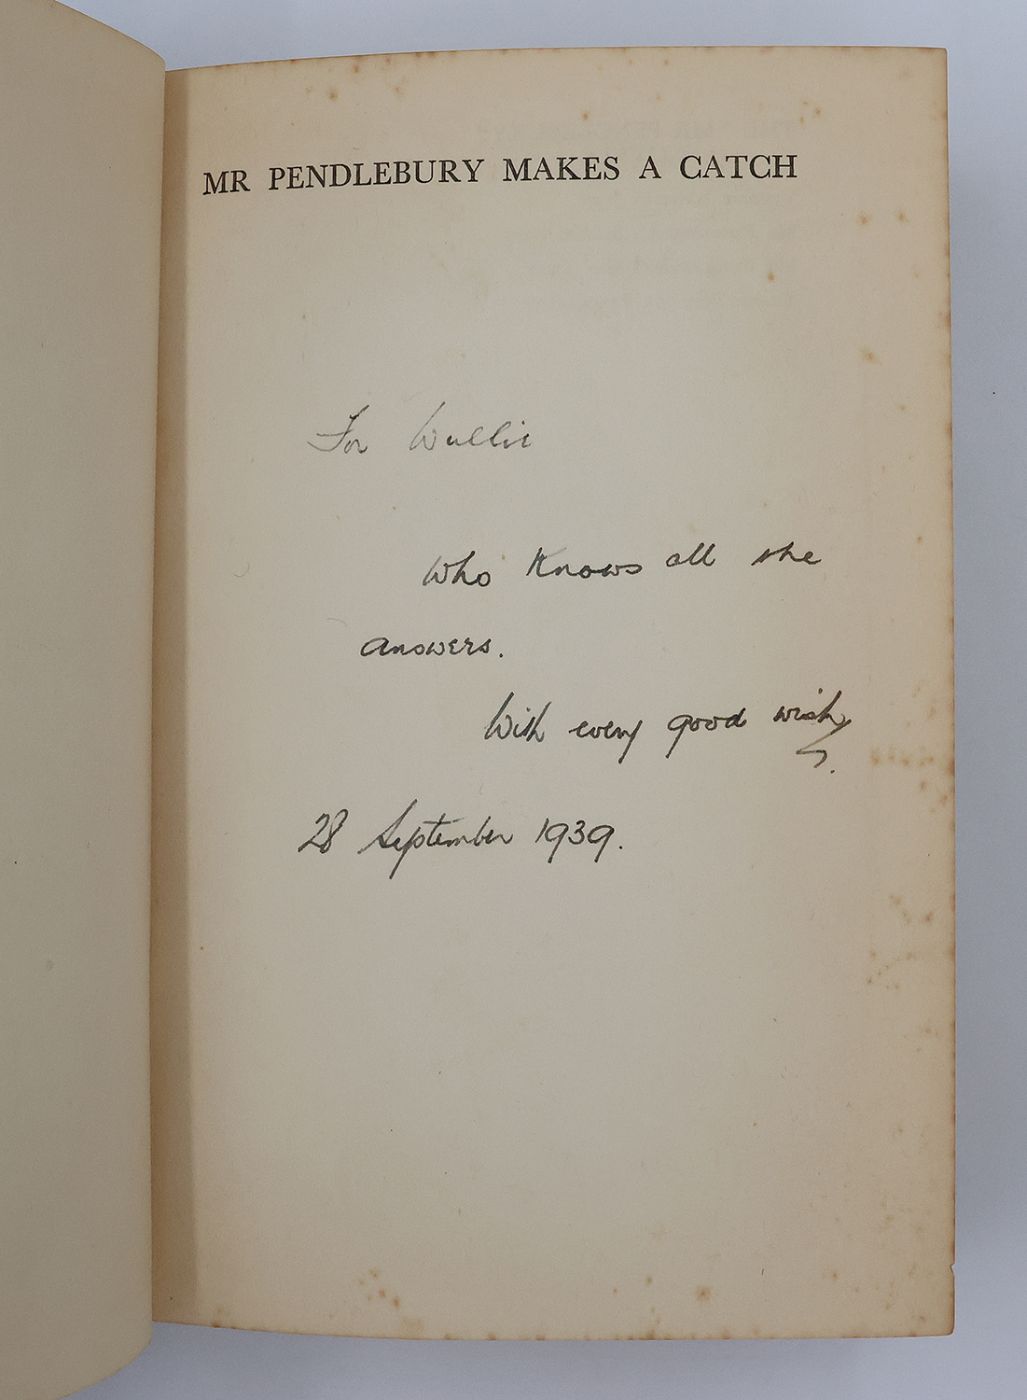 MR PENDLEBURY MAKES A CATCH
For Wallie
Who knows all the
answers.
With every good wish,
28 September 1939.